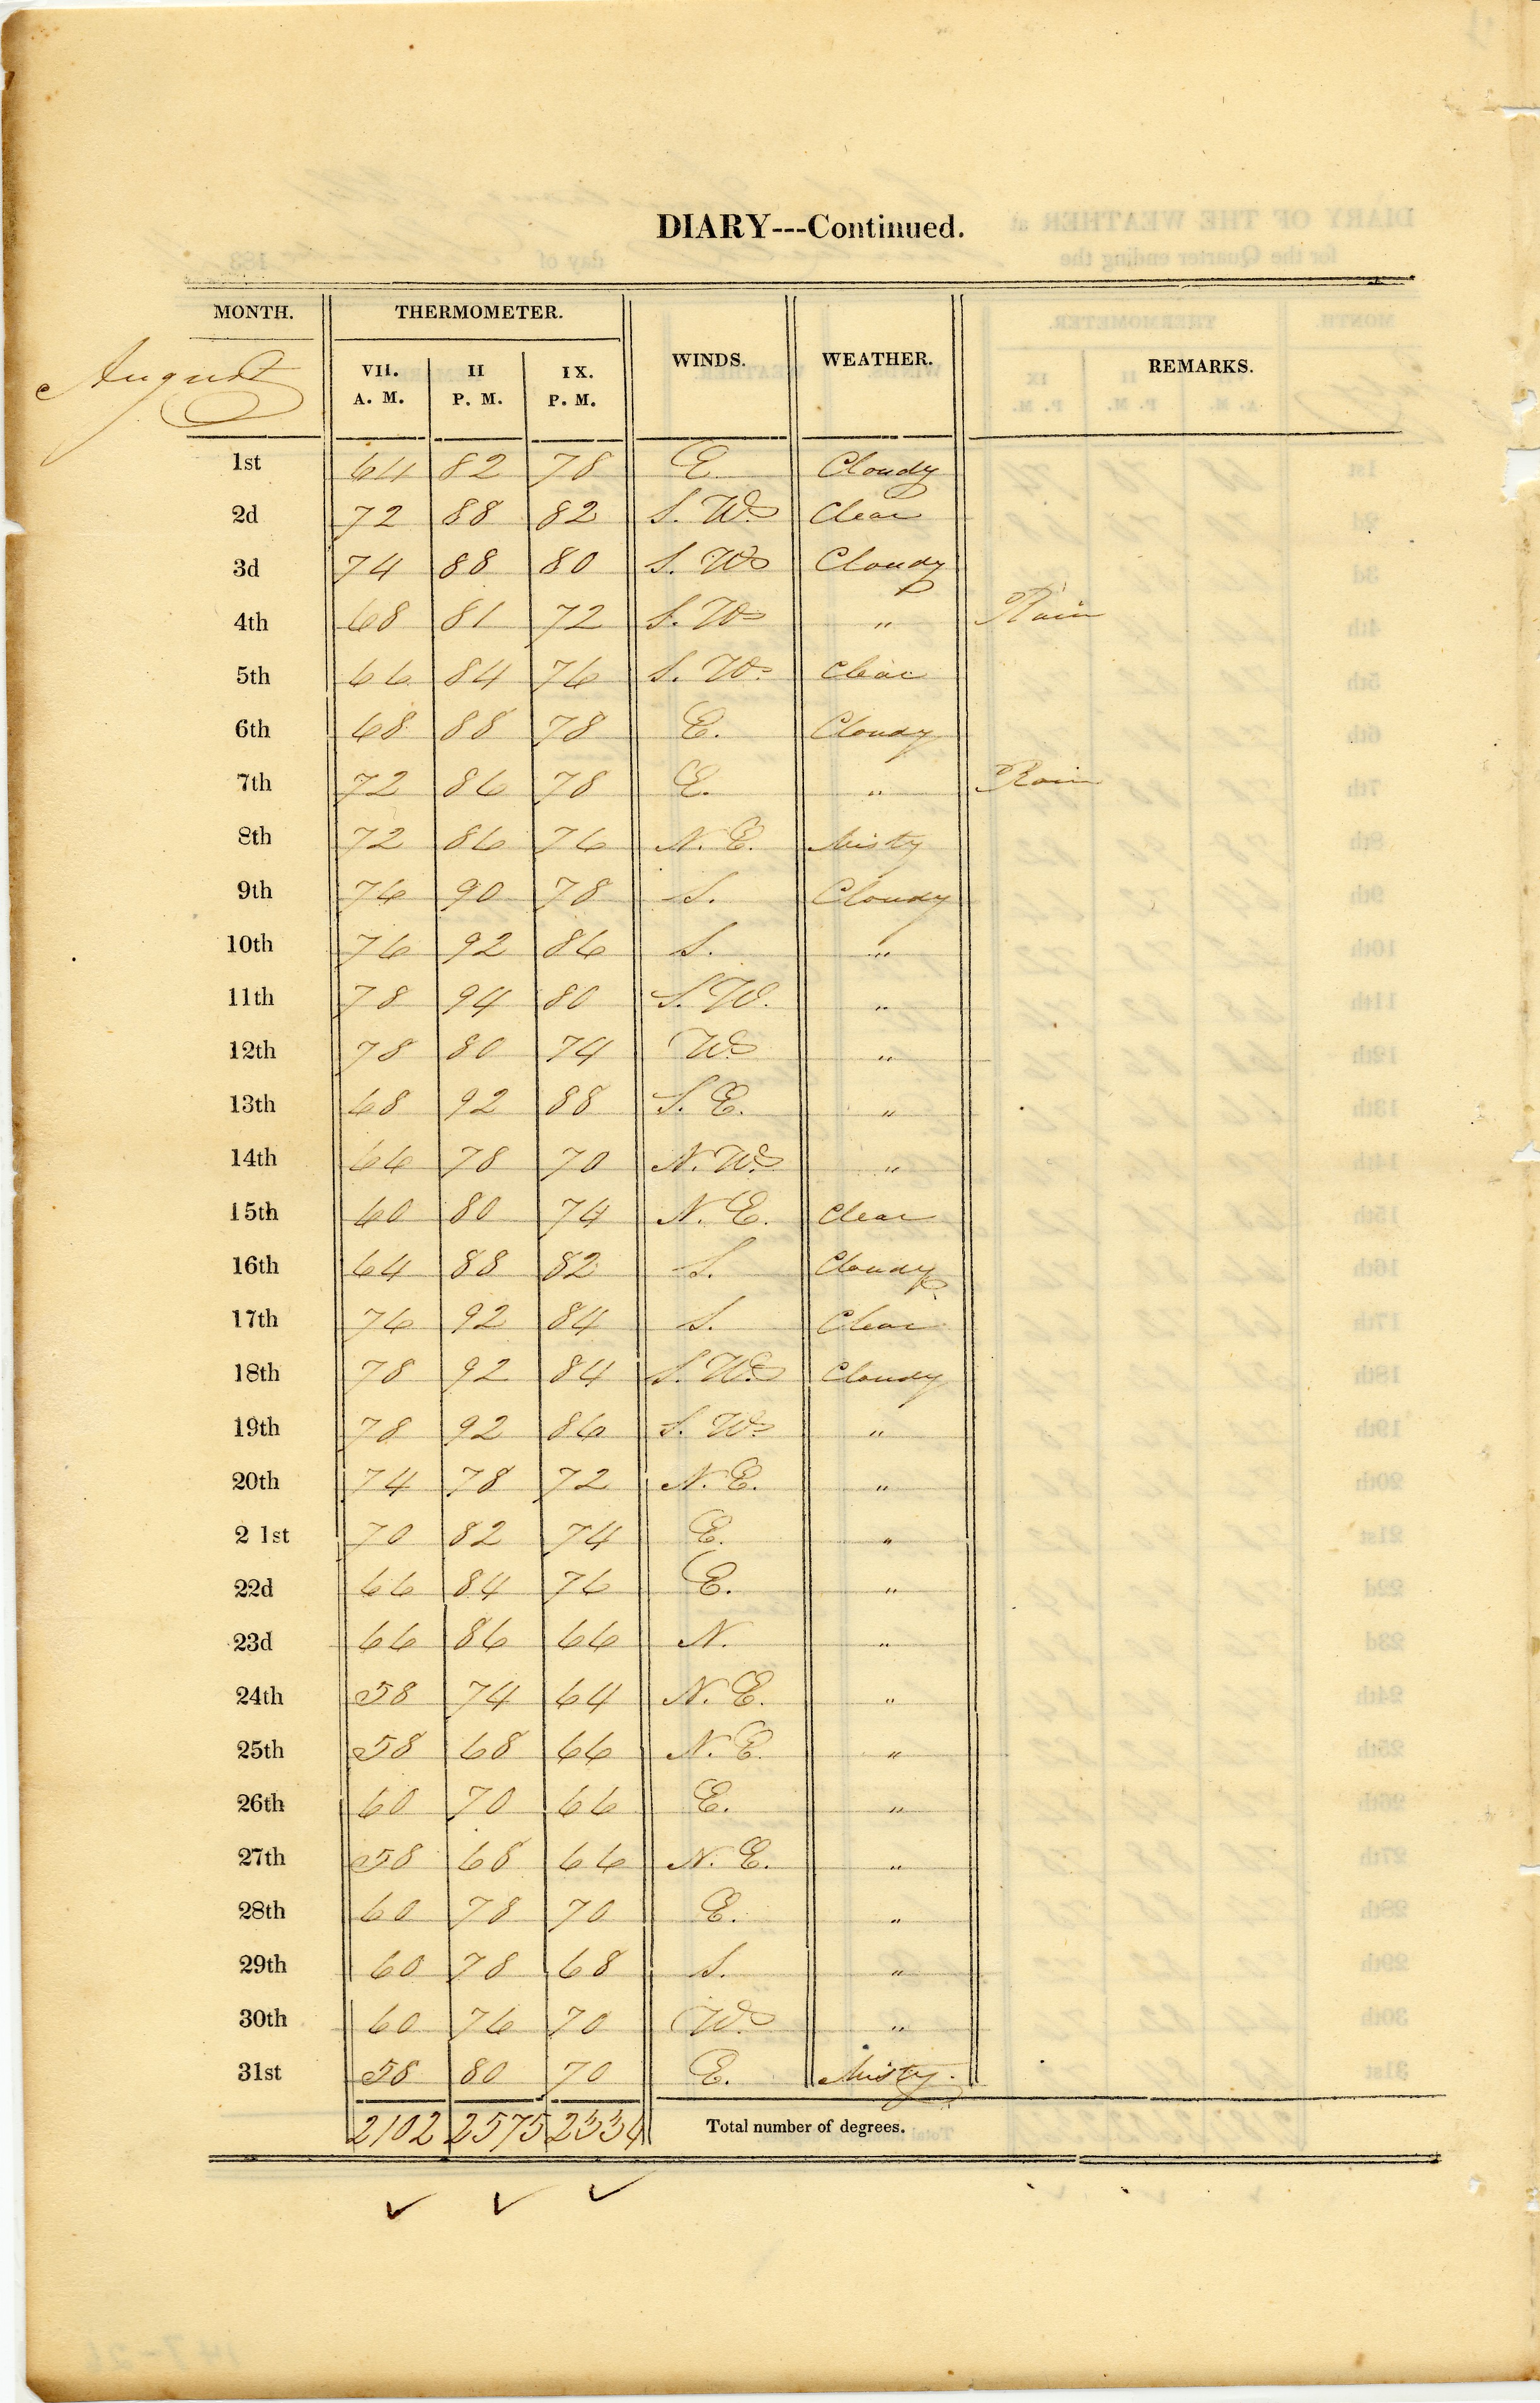 DIARY---Continued.
MONTH. THERMOMETER. WINDS. WEATHER. REMARKS.
August VII. A. M. II P. M. IX. P. M.
1st 64 82 78 E. Cloudy
2d 72 88 82 S. W. Clear
3d 74 88 80 S. W. Cloudy
4th 68 81 72 S. W. " Rain
5th 66 84 76 S. W. Clear
6th 68 88 78 E. Cloudy
7th 72 86 78 E. " Rain
8th 72 86 76 N. E. Misty
9th 76 90 78 S. Cloudy
10th 76 92 86 S. "
11th 78 94 80 S. W. "
12th 78 80 74 W. "
13th 68 92 88 S. E. "
14th 66 78 70 N. W. "
15th 60 80 74 N. E. Clear
16th 64 88 82 S. Cloudy
17th 76 92 84 S. Clear
18th 78 92 84 S. W. Cloudy
19th 78 92 86 S. W. "
20th 74 78 72 N. E. "
21st 70 82 74 E. "
22d 66 84 76 E. "
23d 66 86 66 N. "
24th 58 74 64 N. E. "
25th 58 68 66 N. E. "
26th 60 70 66 E. "
27th 58 68 66 N. E. "
28th 60 78 70 E. "
29th 60 78 68 S. "
30th 60 76 70 W. "
31st 58 80 70 E. Misty.
2102 2575 2334 Total number of degrees.